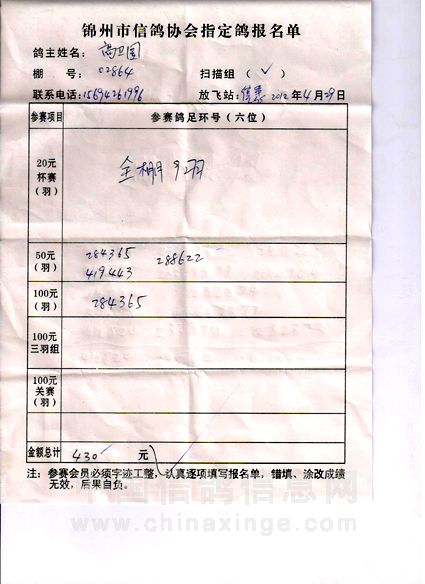 锦州市信鸽协会指定鸽报名单
鸽主姓名：高卫国
棚 号：02864 扫描组（✓）
联系电话：15694261996 放飞站： 2012年4月29日
参赛项目 参赛鸽足环号（六位）
20元
杯赛
（羽）
全棚 9羽
50元
（羽）
284365 288622
419443
100元
（羽）
284365
100元
三羽组
100元
关赛
（羽）
金额总计 430 元
注：参赛会员必须字迹工整，认真逐项填写报名单，错填、涂改成绩
无效，后果自负。
中国信鸽信息网
www.chinaxinge.com